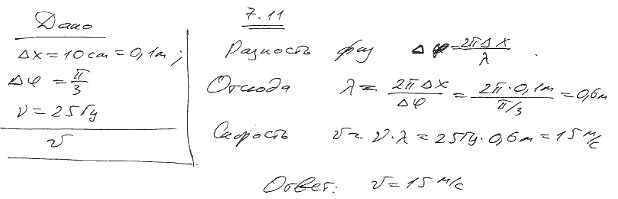 7.11
Дано
Δx = 10 cm = 0,1 м;
Δφ = π/3
ν = 25 Гц
v
Разность фаз Δφ = 2πΔx/λ.
Отсюда λ = 2πΔx/Δφ = 2π·0,1м/π/3 = 0,6м
Скорость v = ν·λ = 25Гц·0,6м = 15 м/с
Ответ: v = 15 м/с